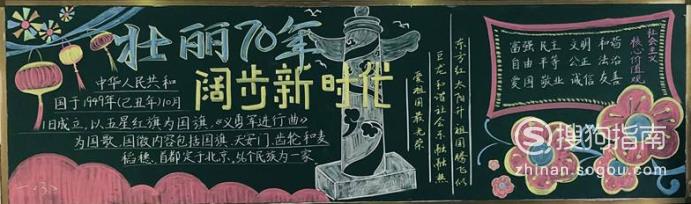 壮丽70年
阔步新时代
中华人民共和
国于1949年(己丑年)10月
1日成立,以五星红旗为国旗,《义勇军进行曲》
为国歌,国徽内容包括国旗、天安门、齿轮和麦
稻穗,首都定于北京,56个民族为一家
东方红太阳升祖国腾飞似
巨龙和谐社会乐融融热
爱祖国最光荣
社会主义
核心价值观
富强 民主 文明 和谐
自由 平等 公正 法治
爱国 敬业 诚信 友善
搜狗指南
zhinan.sogou.com